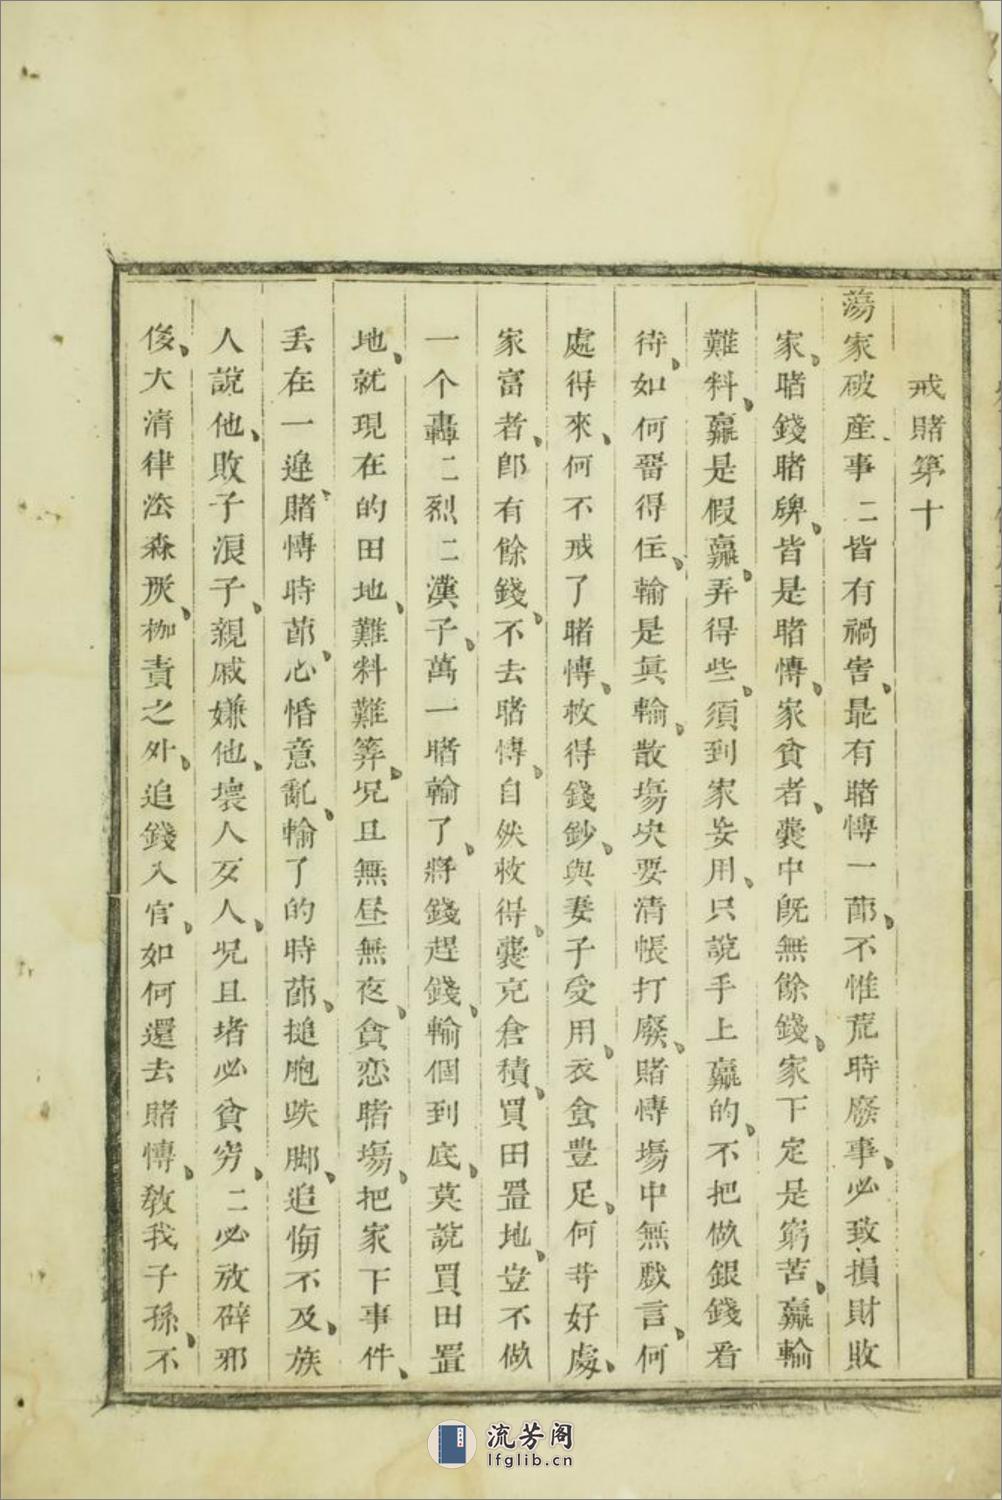 戒賭第十
蕩家破產事二皆有禍害、最有賭博一莭、不惟荒時廢事、必致損財敗
家、賭錢賭牌、皆是賭博、家貧者、囊中旣無餘錢、家下定是窮苦、贏輸
難料、贏是假贏、弄得些、須到家妄用、只說手上贏的、不把做銀錢看
待、如何畱得住、輸是眞輸、散塲央要清帳打廢、賭博塲中無戲言、何
處得來、何不戒了賭博、收得錢鈔、與妻子受用、衣食豊足、何等好處、
家富者、卽有餘錢、不去賭博、自然收得、囊充倉積、買田置地、豈不做
一个轟二烈二漢子、萬一賭輸了、將錢趕錢、輸個到底、莫說買田置
地、就現在的田地、難料難筭、况且無昼無夜、貪恋賭塲、把家下事件、
丢在一邉、賭博時莭、心惛意亂、輸了的時莭、搥胸跌脚、追悔不及、族
人說他、敗子浪子、親戚嫌他、壞人歹人、况且堵必貧穷、二必放辟邪
後、大清律法森厥、枷責之外、追錢入官、如何還去賭博、敎我子孫、不
流芳阁
lfglib.cn